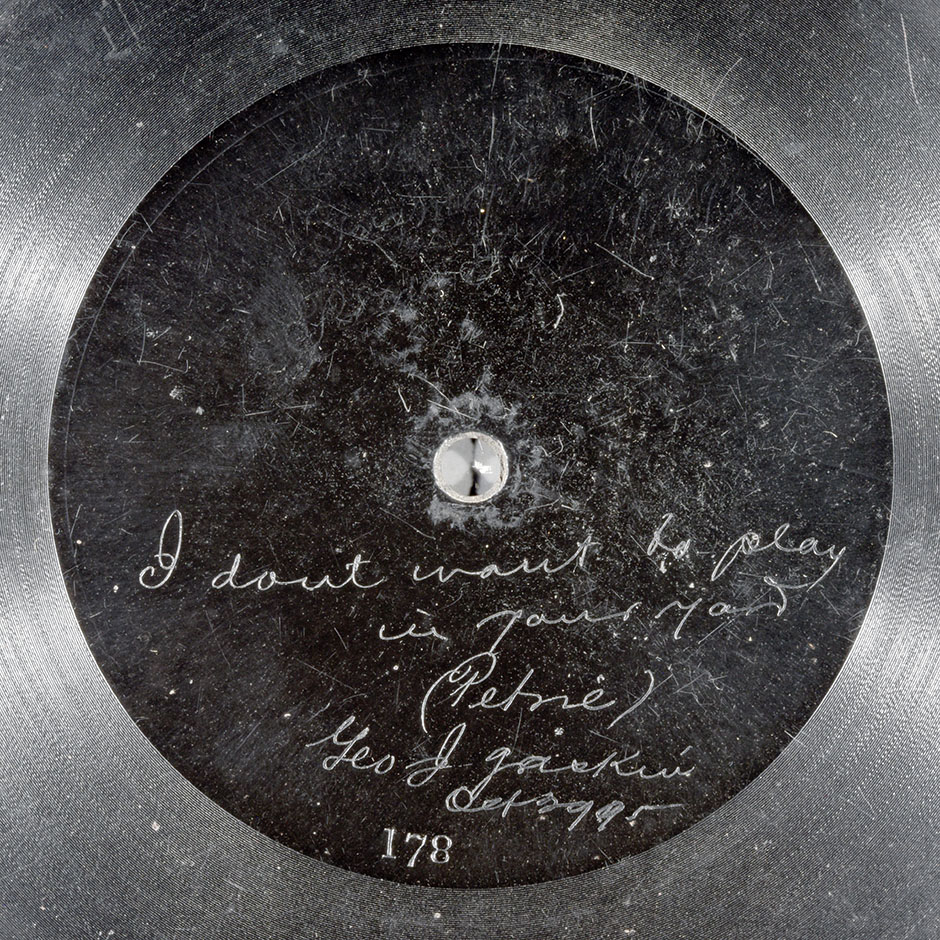 I dont want to play
in your yard
(Petrie)
Geo J gaskin
Oct 29 95
178